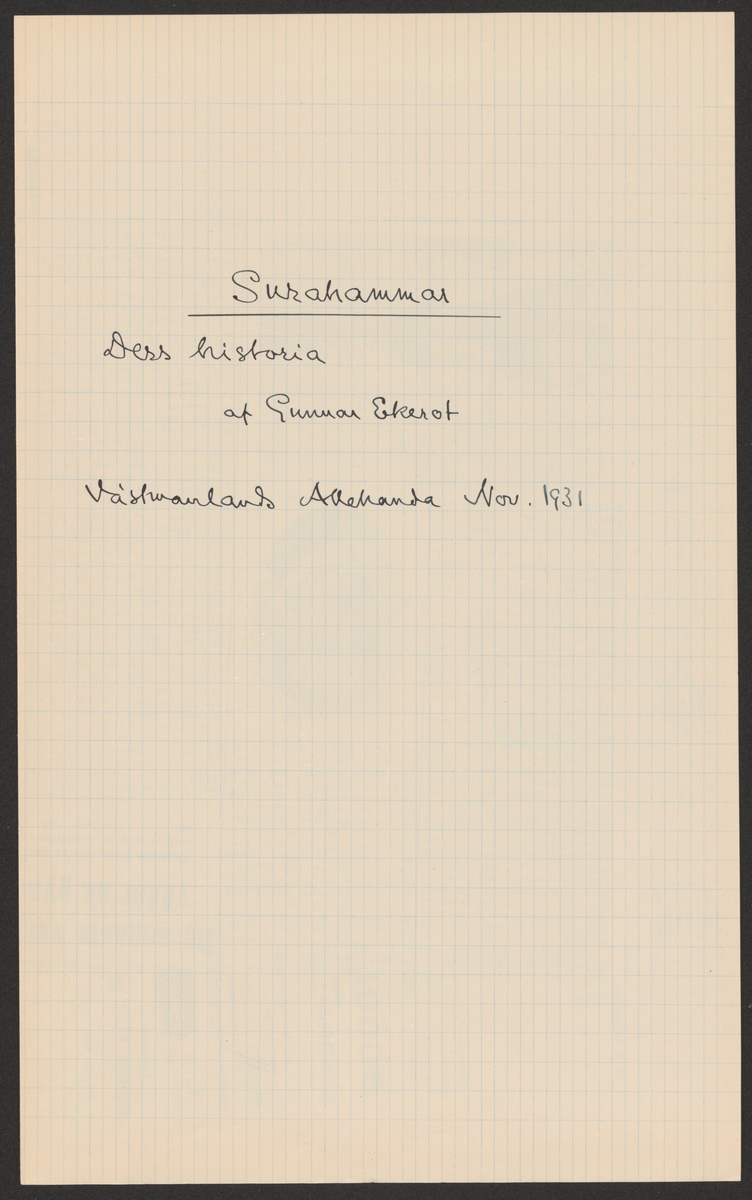 Surahammar
Dess historia
af Gunnar Ekerot
Västmanlands Allehanda Nov. 1931